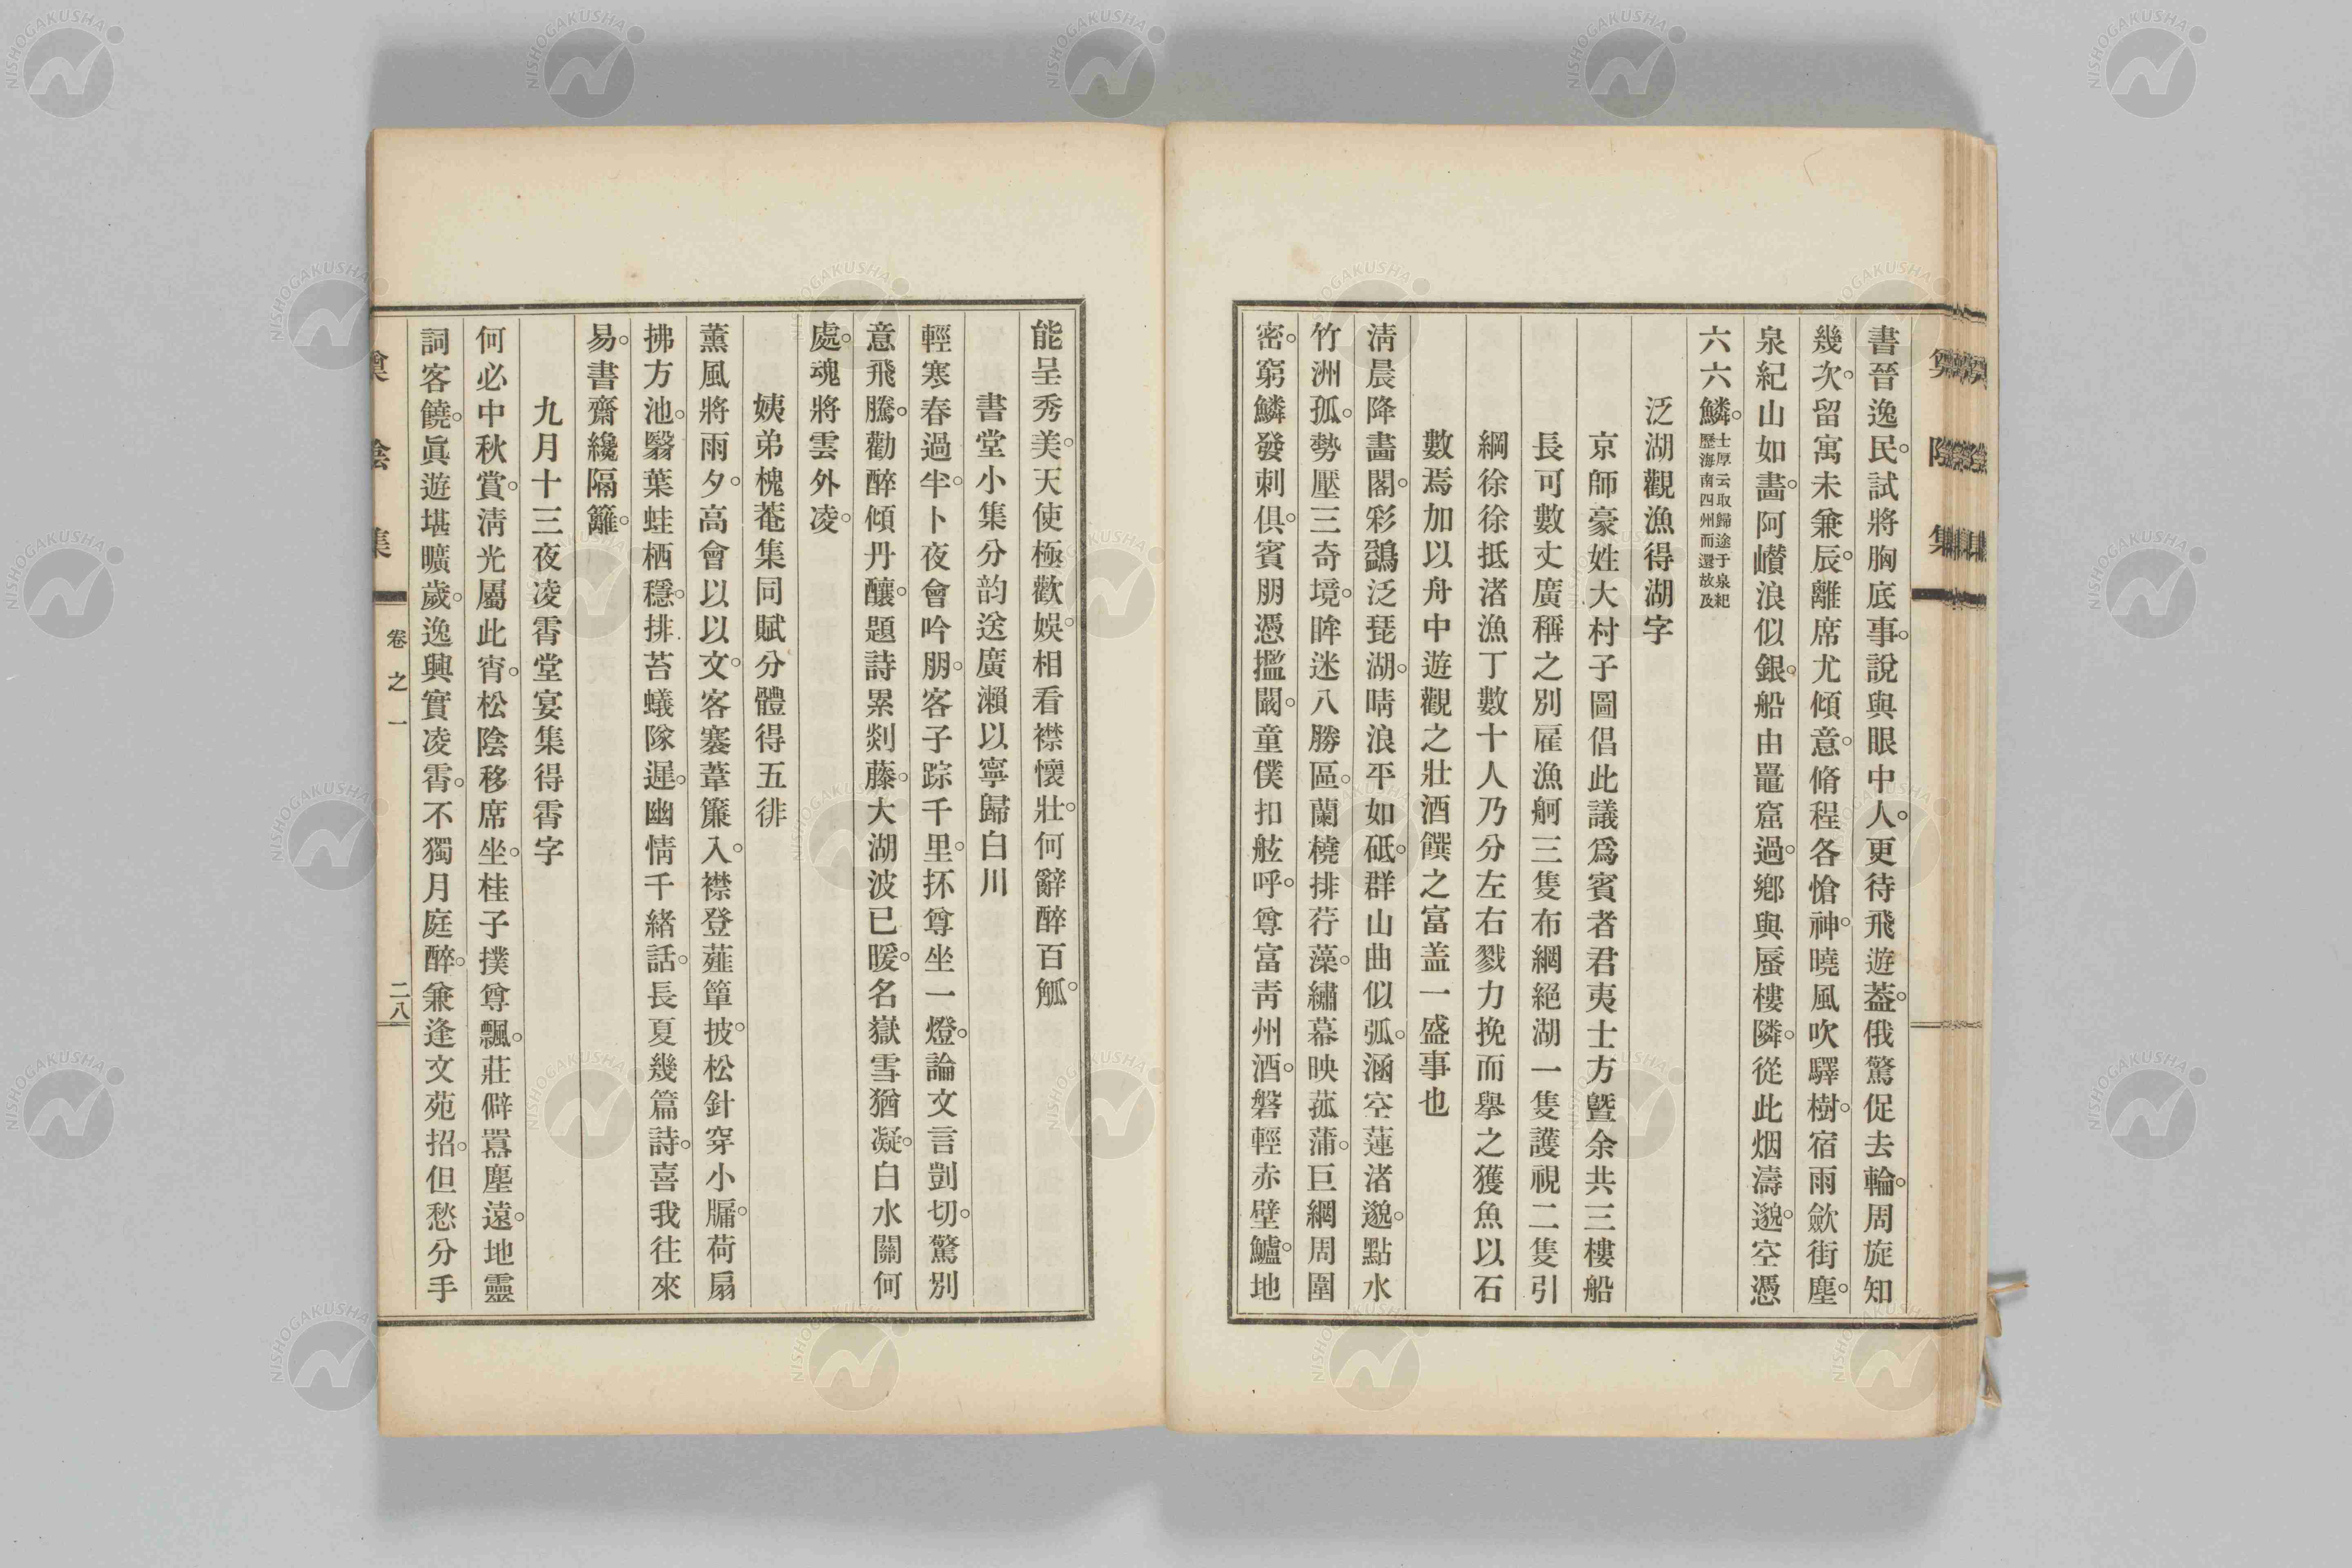 書晉逸民。試將胸底事。說與眼中人。更待飛遊蓋。俄驚促去輪。周旋知
幾次。留寓未兼辰。離席尤傾意。脩程各愴神。曉風吹驛樹。宿雨歛街塵。
泉紀山如畵。阿巑浪似銀。船由鼉窟過。鄉與蜃樓隣。從此烟濤邈。空憑
六六鱗。士厚云取歸途于泉紀歷海南四州而還故及
泛湖觀漁得湖字
京師豪姓大村子圖倡此議爲賓者君夷士方曁余共三樓船
長可數丈廣稱之別雇漁舸三隻布網絕湖一隻護視二隻引
綱徐徐抵渚漁丁數十人乃分左右戮力挽而擧之獲魚以石
數焉加以舟中遊觀之壯酒饌之富盖一盛事也
淸晨降畵閣。彩鷁泛琵湖。晴浪平如砥。群山曲似弧。涵空蓮渚邈。點水
竹洲孤。勢壓三奇境。眸迷八勝區。蘭橈排荇藻。繡幕映菰蒲。巨網周圍
密。窮鱗發刺俱。賓朋憑攔闞。童僕扣舷呼。尊富靑州酒。磐輕赤壁鱸。地
能呈秀美。天使極歡娛。相看襟懷壯。何辭醉百觚。
書堂小集分韵送廣瀨以寧歸白川
輕寒春過半。卜夜會吟朋。客子踪千里。抔尊坐一燈。論文言剴切。驚別
意飛騰。勸醉傾丹釀。題詩累剡藤。大湖波已暖。名嶽雪猶凝。白水關何
處。魂將雲外凌。
姨弟槐菴集同賦分體得五徘
薰風將雨夕。高會以以文。客褰葦簾入。襟登薤簟披。松針穿小牖。荷扇
拂方池。翳葉蛙栖穩。排苔蟻隊遲。幽情千緖話。長夏幾篇詩。喜我往來
易。書齋纔隔籬。
九月十三夜凌霄堂宴集得霄字
何必中秋賞。淸光屬此宵。松陰移席坐。桂子撲尊飄。莊僻囂塵遠。地靈
詞客饒。眞遊堪曠歲。逸興實凌霄。不獨月庭醉。兼逢文苑招。但愁分手
卷之一
二八